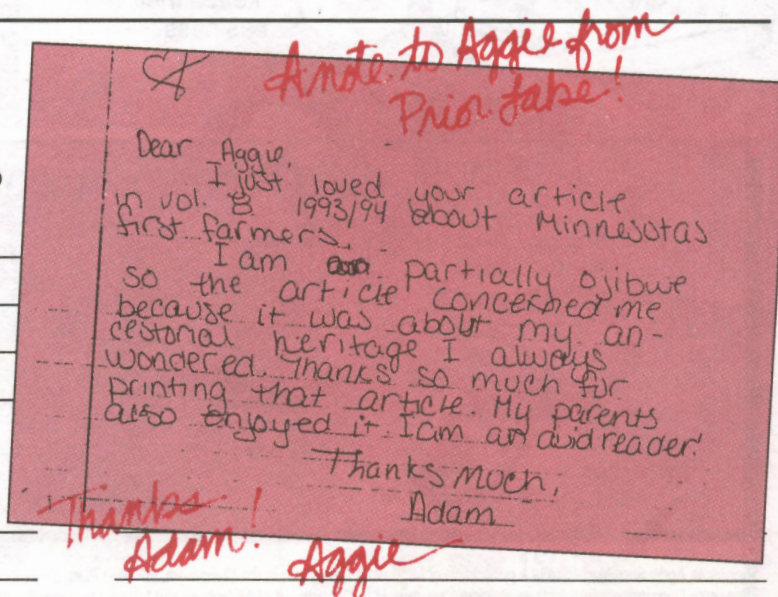 A note to Aggie from
Prior Lake!
Dear Aggie,
I just loved your article
in vol. 8 1993/94 about Minnesotas
first farmers.
I am partially Ojibwe
so the article concerned me
because it was about my an-
cestorial heritage I always
wondered. Thanks so much for
printing that article. My parents
also enjoyed it I am an avid reader!
Thanks Much,
Adam
Thanks
Adam! Aggie